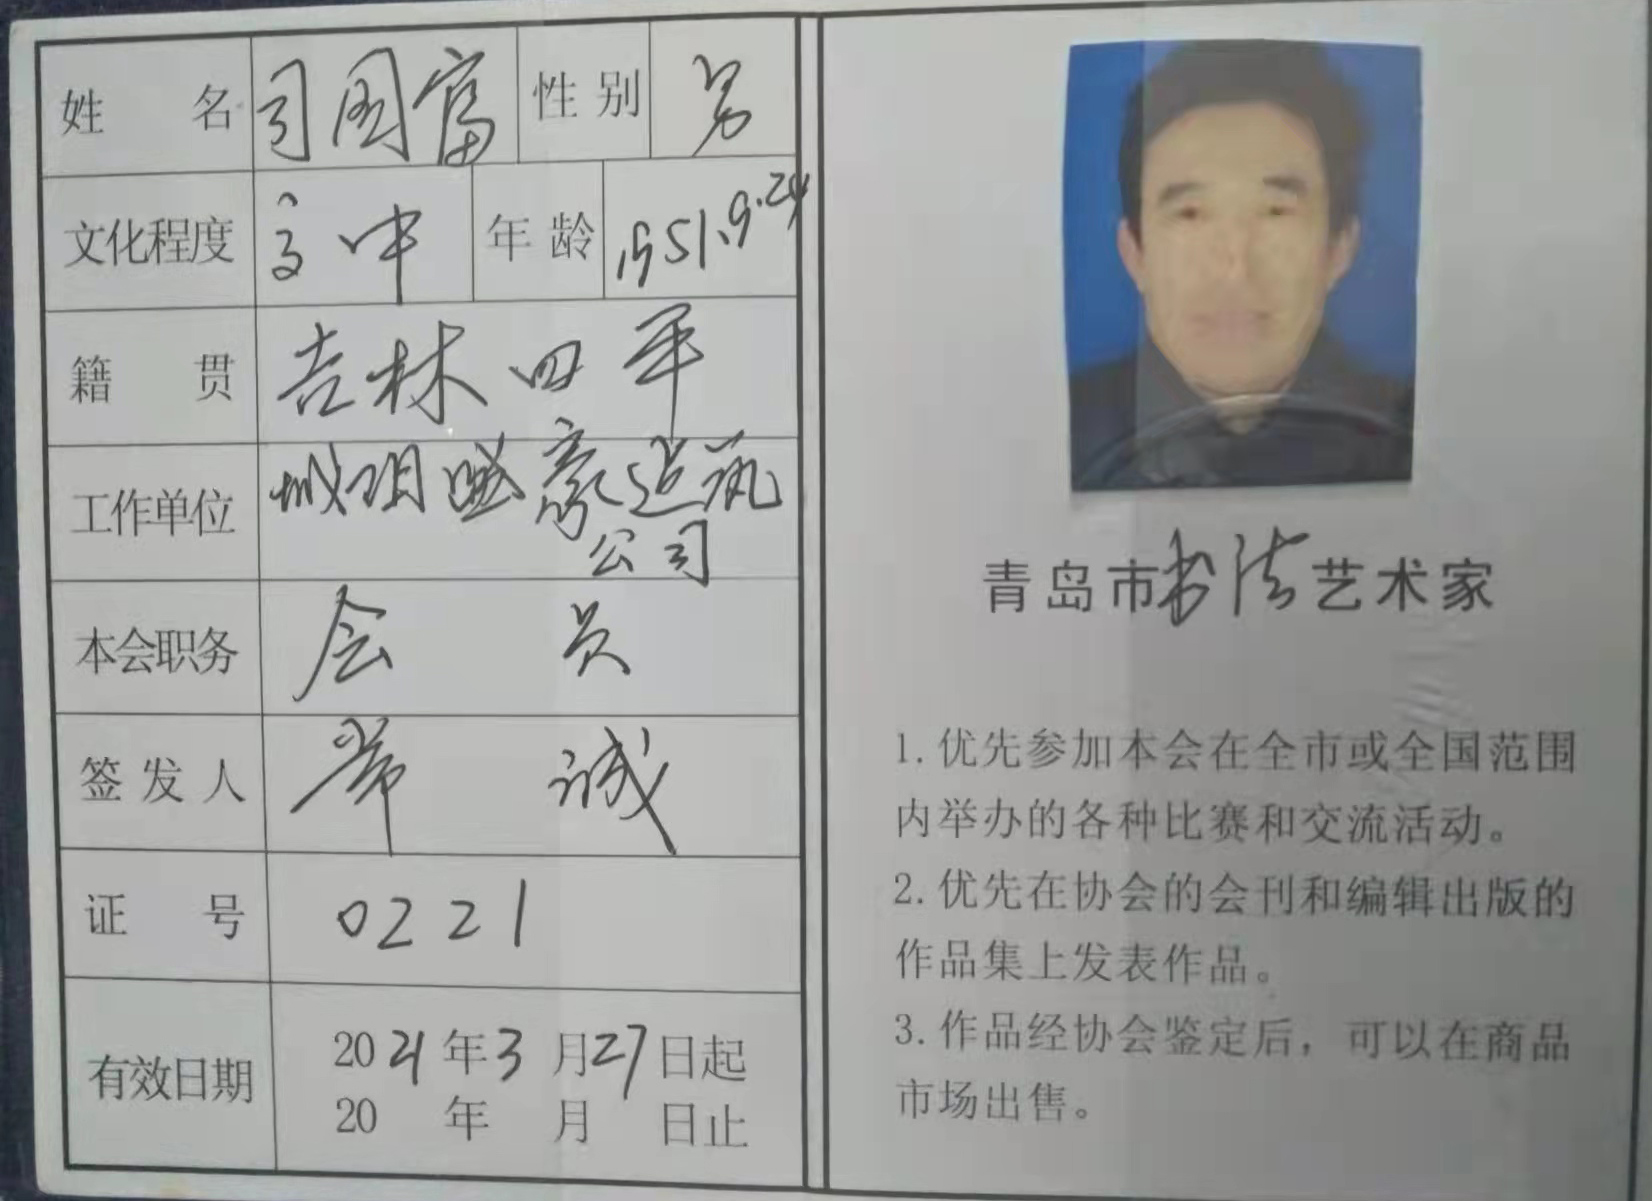 姓名 司国富 性别 男
文化程度 高中 年龄 1951.9.24
籍贯 吉林四平
工作单位 城阳 豪建筑
公司
本会职务 会员
签发人 常诚
证号 0221
有效日期 2021年3月27日起
20 年 月 日止
青岛市书法艺术家
1.优先参加本会在全市或全国范围
内举办的各种比赛和交流活动。
2.优先在协会的会刊和编辑出版的
作品集上发表作品。
3.作品经协会鉴定后，可以在商品
市场出售。